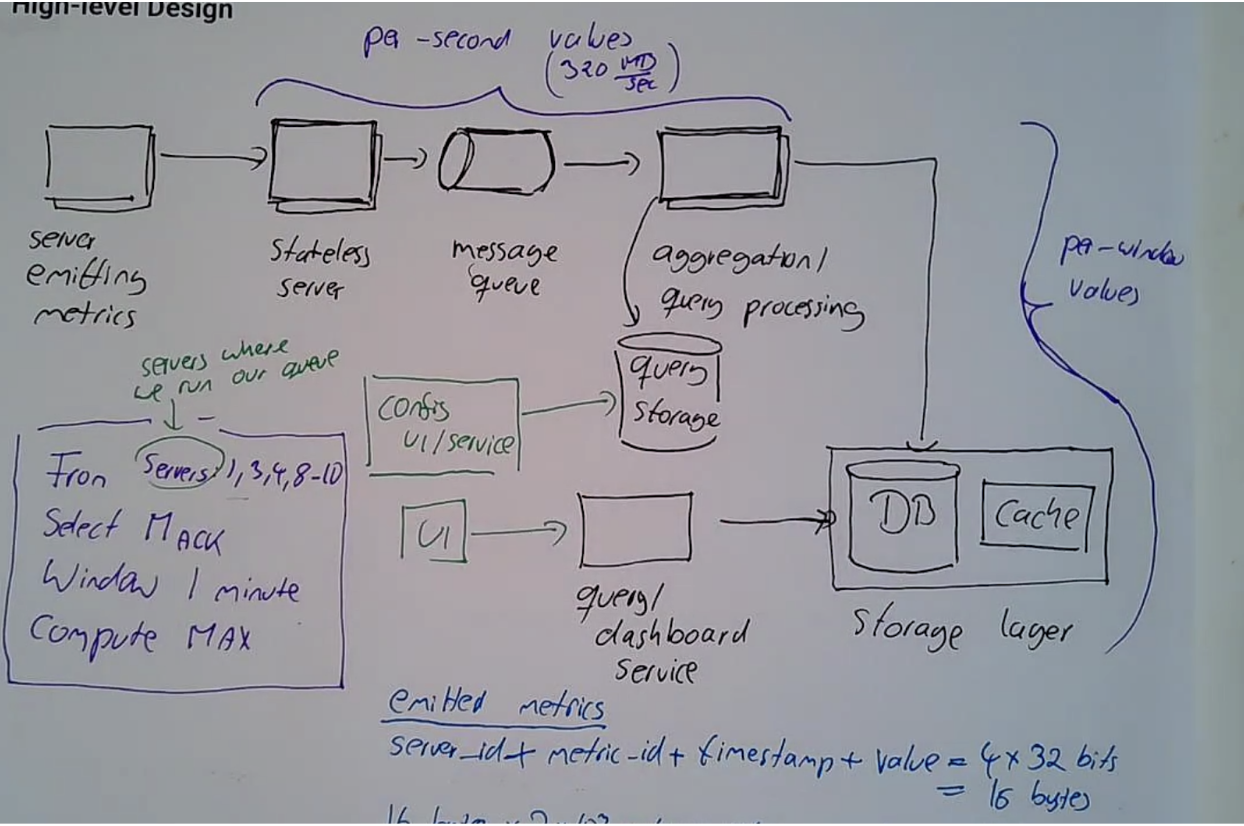 High-level Design
per-second values
(320 MB/sec)
server
emitting
metrics
Stateless
server
message
queue
aggregation/
query processing
per-window
values
servers where
we run our queue
Config
UI/service
query
storage
From Servers: 1, 3, 4, 8-10
Select MACK
Window 1 minute
Compute MAX
UI
query/
dashboard
service
DB
Cache
Storage layer
emitted metrics
server_id + metric_id + timestamp + value = 4 x 32 bits
= 16 bytes